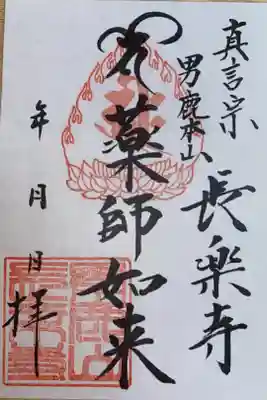 真言宗
男鹿本山
長楽寺
薬師如来
年 月 日
拝